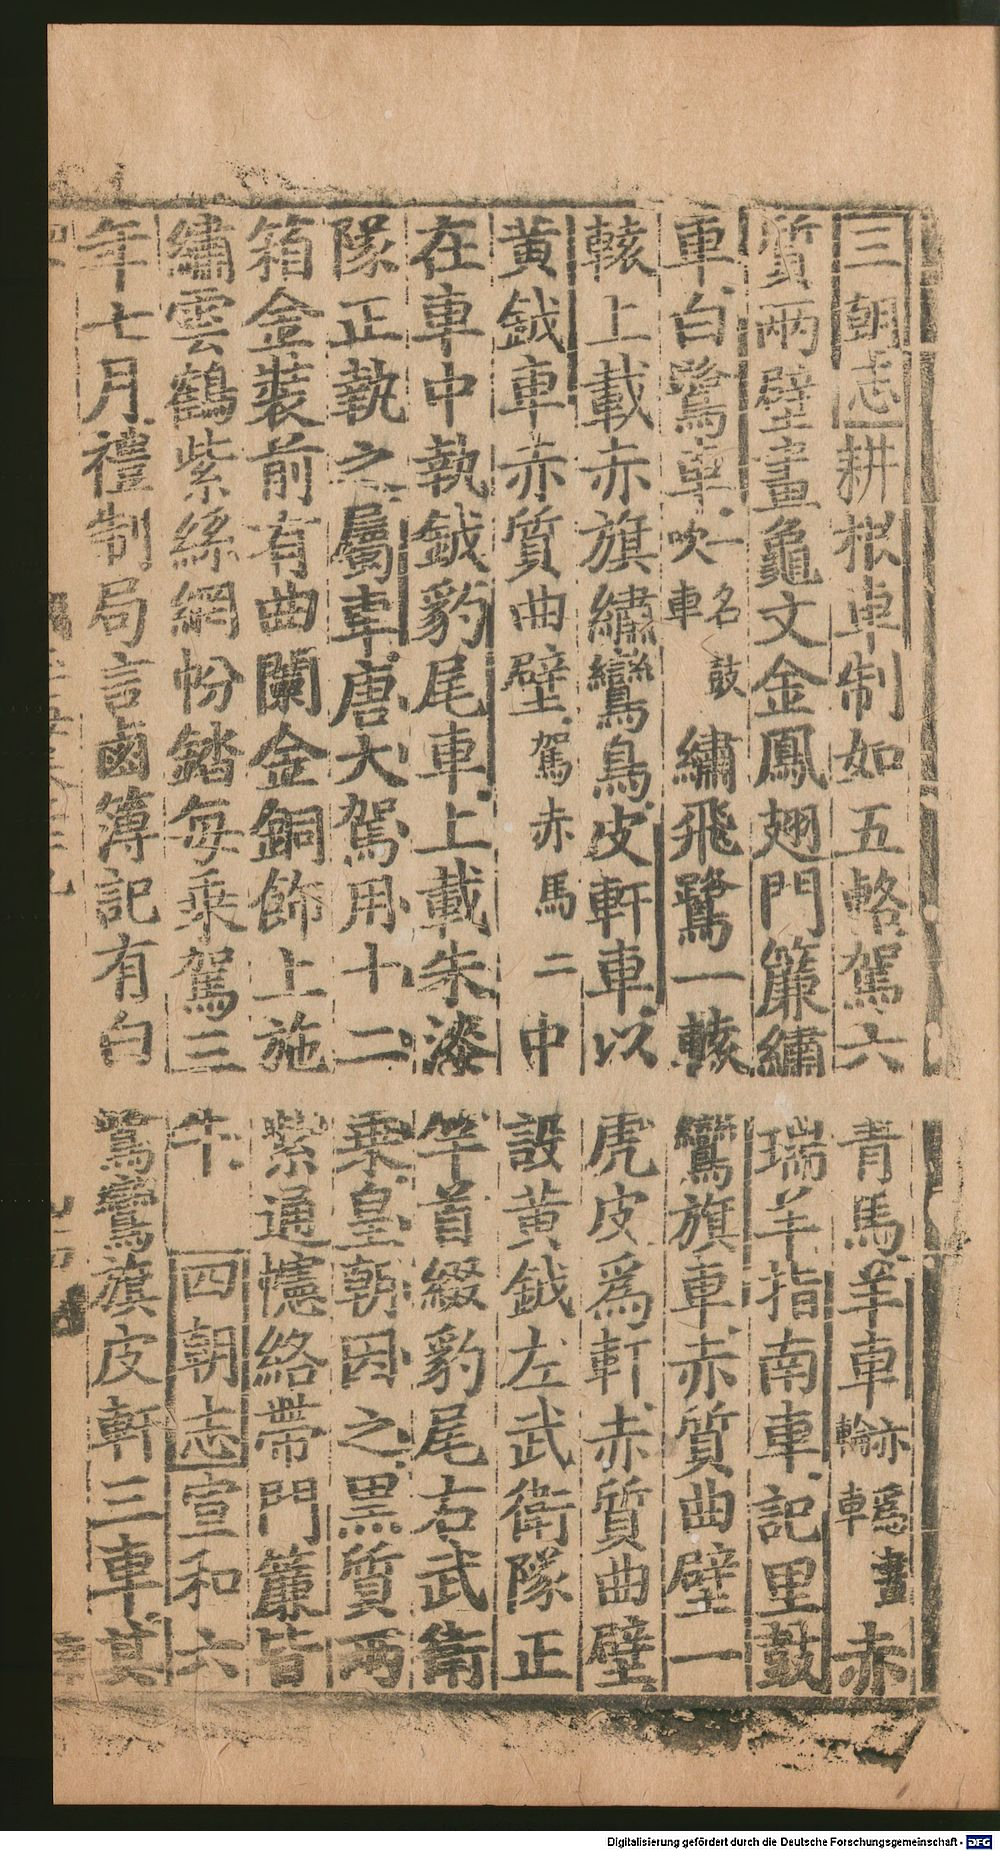 三朝志耕根車制如五輅駕六青馬羊車亦輪車轜畫赤
質兩壁畫龜文金鳳翅門簾繡瑞羊指南車記里鼓
車白鷺車一名鼓吹車繡飛鷺一轅鸞旗車赤質曲壁一
轅上載赤旗繡鸞鳥皮軒車以虎皮爲軒赤質曲壁
黄鉞車赤質曲壁駕赤馬二中設黄鉞左武衛隊正
在車中執鉞豹尾車上載朱漆竿首綴豹尾右武衛
隊正執之屬車唐大駕用十二乘皇朝因之黑質兩
箱金裝前有曲闌金銅飾上施紫通幰絡帶門簾皆
繡雲鶴紫絲網帉錔每乘駕三牛四朝志宣和六
年七月禮制局言鹵簿記有白鷺鸞旗皮軒三車其
Digitalisierung gefördert durch die Deutsche Forschungsgemeinschaft - DFG